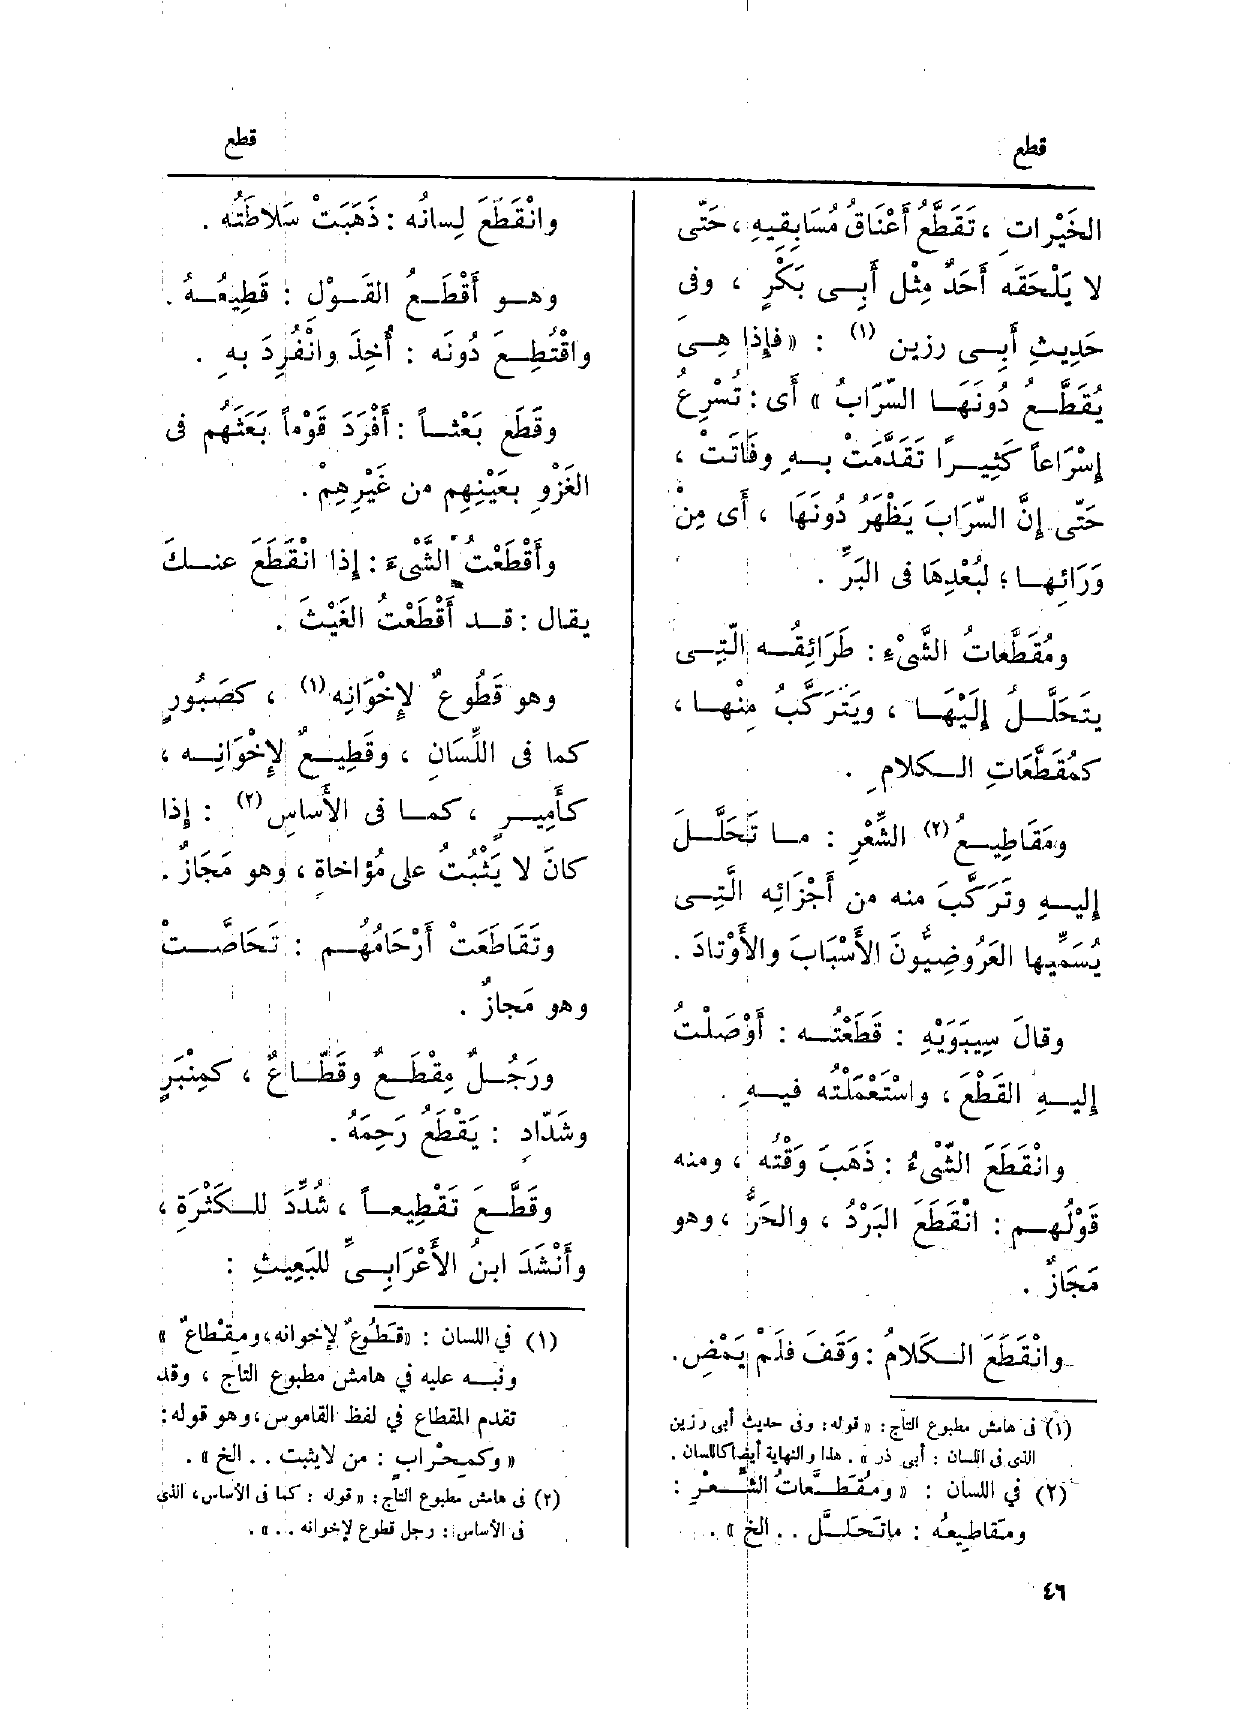 قطع
قطع
الخَيْراتِ ، تَقَطَّعُ أَعْنَاقُ مُسَابِقِيهِ ، حَتّى
لا يَلْحَقَه أَحَدٌ مِثْل أَبِـى بَكْرٍ ، وفى
حَدِيثِ أَبِـى رزين (١) : «فإِذا هِـىَ
يُقَطَّـعُ دُونَهَـا السَّرَابُ» أى : تُسْرِعُ
إِسْرَاعاً كَثِيـرًا تَقَدَّمَتْ بـهِ وفَاتَتْ ،
حَتّى إِنَّ السَّرَابَ يَظْهَرُ دُونَهَا ، أَى مِنْ
وَرَائِهـا ؛ لبُعْدِهَا فى البَرِّ .
ومُقَطَّعاتُ الشَّىْءِ : طَرَائِقُـه الَّتِـى
يتَحَلَّـلُ إِلَيْهَـا ، ويَتَرَكَّبُ مِنْهـا ،
كمُقَطَّعَاتِ الـكلامِ .
ومَقَاطِيـعُ (٢) الشِّعْرِ : مـا تَحَلَّـلَ
إِليـهِ وتَرَكَّبَ منه من أَجْزَائِه الَّتِـى
يُسَمِّيها العَرُوضِيُّونَ الأَسْبَابَ والأَوْتادَ .
وقالَ سِيبَوَيْهِ : قَطَعْتُـه : أَوْصَلْتُ
إِليـهِ القَطْعَ ، واسْتَعْمَلْتُه فيـهِ .
وانْقَطَعَ الشَّىْءُ : ذَهَبَ وَقْتُه ، ومنه
قَوْلُهـم : انْقَطَعَ البَرْدُ ، والحَرُّ ، وهو
مَجَازٌ .
وانْقَطَعَ الـكَلامُ : وَقَفَ فلَمْ يَمْضِ.
(١) فى هامش مطبوع التاج : « قوله : وفى حديث أبى رزين
الذى فى اللسان : أبى ذر » . هذا والنهاية أيضا كاللسان .
(٢) في اللسان : « ومُقَطَّعاتُ الشِّـعْرِ :
ومَقاطِيعُه : ماتَحَلَّل .. الخ » .
٤٦
وانْقَطَعَ لِسانُه : ذَهَبَتْ سَلاطَتُه .
وهـو أَقْطَـعُ القَـوْلِ : قَطِيعُـهُ .
واقْتُطِـعَ دُونَه : أُخِذَ وانْفُرِدَ بهِ .
وقَطَع بَعْثـاً : أَفْرَدَ قَوْماً بَعَثَهم فى
الغَزْوِ بعَيْنِهِم من غَيْرِهِمْ .
وأَقْطَعْتُ الشَّىءَ : إِذا انْقَطَعَ عنـكَ
يقال : قـد أَقْطَعْتُ الغَيْثَ .
وهو قَطُوعٌ لإِخْوَانِه (١) ، كصَبُورٍ
كما فى اللِّسَانِ ، وقَطِيـعٌ لإِخْوَانِـه ،
كأَمِيـرٍ ، كمـا فى الأَساسِ (٢) : إِذا
كانَ لا يَثْبُتُ على مُؤاخاة ، وهو مَجَازٌ .
وتَقَاطَعَتْ أَرْحَامُهُـم : تَحَاصَّـتْ
وهو مَجازٌ .
ورَجُـلٌ مِقْطَـعٌ وقَطَّـاعٌ ، كمِنْبَرٍ
وشَدّادٍ : يَقْطَعُ رَحِمَهُ .
وقَطَّـعَ تَقْطِيعـاً ، شُدِّدَ للـكَثْرَةِ ،
وأَنْشَدَ ابنُ الأَعْرَابِـىِّ للبَعِيثِ :
(١) في اللسان : «قَطُوعٌ لإخوانه، ومِقْطاعٌ »
ونبـه عليه في هامش مطبوع التاج ، وقد
تقدم المقطاع في لفظ القاموس، وهو قوله:
« وكمِحْرابٍ : من لايثبت .. الخ » .
(٢) فى هامش مطبوع التاج : « قوله : كما فى الأساس، الذى
فى الأساس : رجل قطوع لإخوانه .. » .